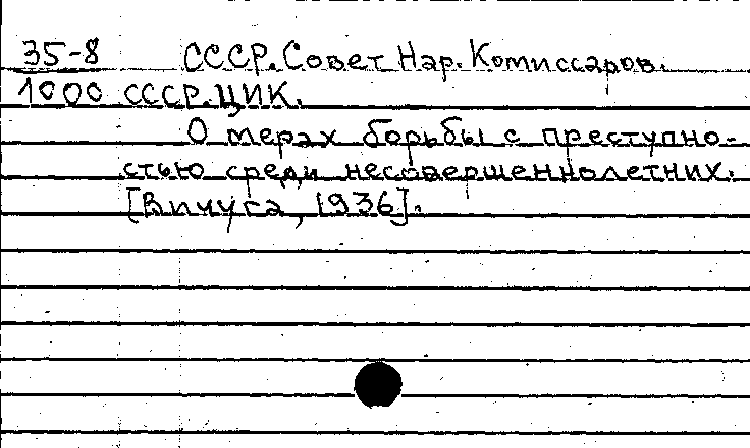 35-8 СССР. Совет Нар. Комиссаров.
1000 СССР. ЦИК.
О мерах борьбы с преступно-
стью среди несовершеннолетних.
[Вичуга, 1936].